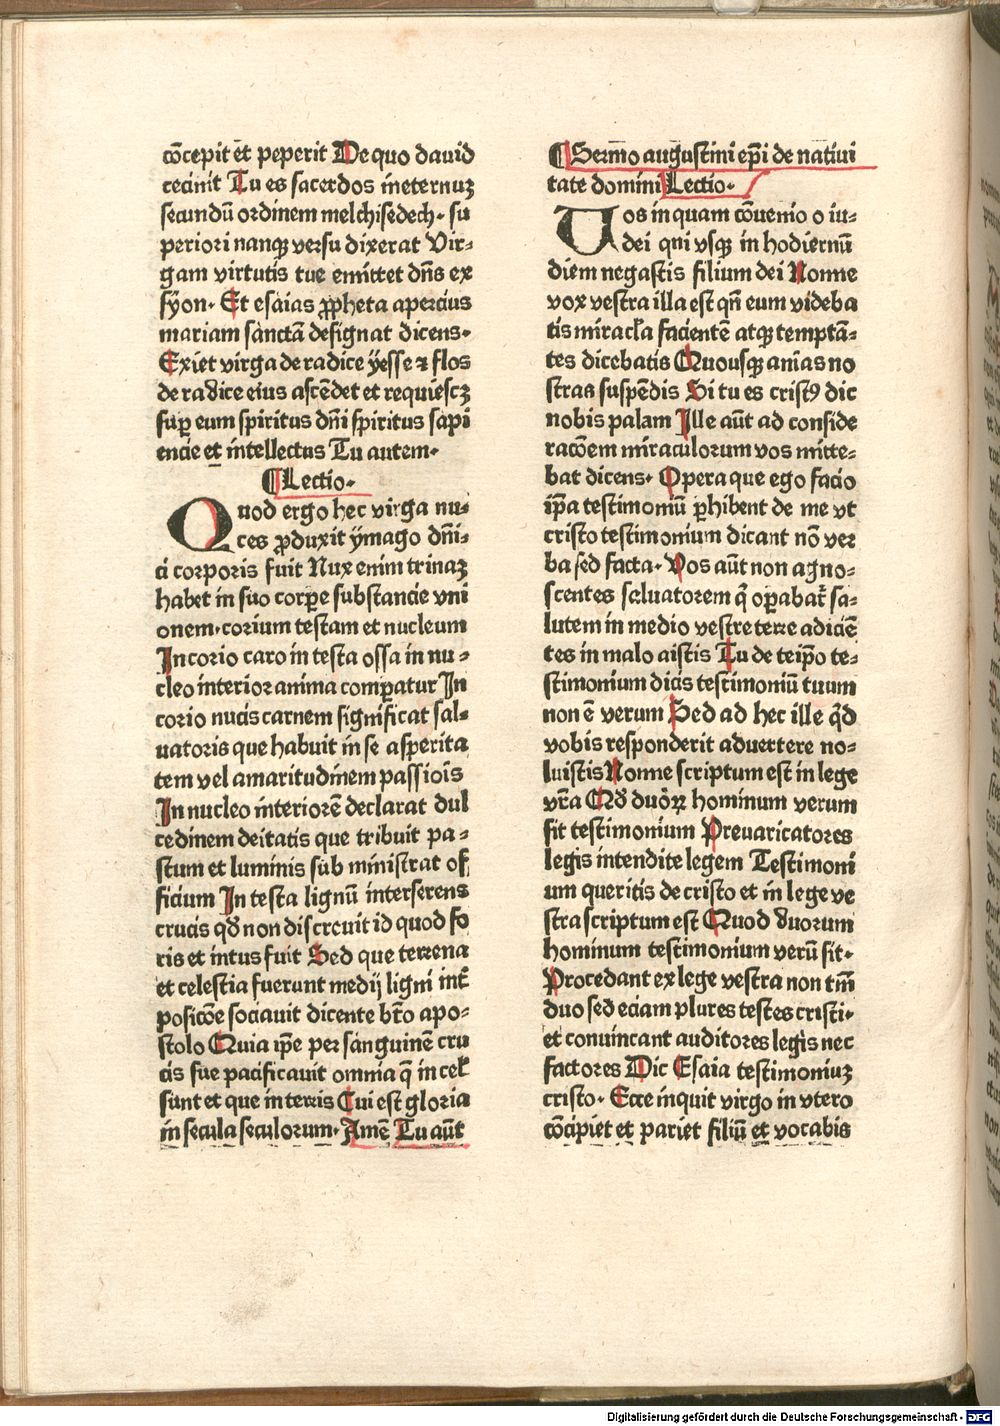 cōcepit et peperit De quo dauid
cecinit Tu es sacerdos ineternuꝫ
secundū ordinem melchisedech· su
periori nanqꝫ versu dixerat Vir⸗
gam virtutis tue emittet dn̄s ex
syon· Et esaias ꝓpheta apercius
mariam sanctā designat dicens·
Exiet virga de radice yesse ⁊ flos
de radice eius ascēdet et requiescꝫ
suꝑ eum spiritus dn̄i spiritus sapi
encie et intellectus Tu autem·
¶Lectio·
Quod ergo hec virga nu⸗
ces ꝓduxit ymago dn̄i⸗
ci corporis fuit Nux enim trinaꝫ
habet in suo corꝑe substancie vni
onem·corium testam et nucleum
In corio caro in testa ossa in nu⸗
cleo interior anima comꝑatur In
corio nucis carnem significat sal⸗
uatoris que habuit in se asperita
tem vel amaritudinem passiōis
In nucleo interiorē declarat dul
cedinem deitatis que tribuit pa⸗
stum et luminis sub ministrat of
ficium In testa lignū interserens
crucis qď non discreuit id quod fo
ris et intus fuit Sed que terrena
et celestia fuerunt medij ligni int̄
posicōe sociauit dicente bt̄o apo⸗
stolo Quia ip̄e per sanguinē cru
cis sue pacificauit omnia q̄ in cel̄
sunt et que in terris Cui est gloria
in secula seculorum· Amē Tu aūt
¶Sermo augustini ep̄i de natiui
tate domini Lectio·
Uos in quam cōuenio o iu⸗
dei qui vsqꝫ in hodiernū
diem negastis filium dei Nonne
vox vestra illa est qn̄ eum videba
tis miracl̄a facientē atqꝫ temptā⸗
tes dicebatis Quousqꝫ aniās no
stras suspēdis Si tu es cristꝰ dic
nobis palam Ille aūt ad conside
racōem miraculorum vos mitte⸗
bat dicens· Opera que ego facio
ip̄a testimoniū ꝑhibent de me vt
cristo testimonium dicant nō ver
ba sed facta· Vos aūt non agno⸗
scentes saluatorem q̄ oꝑabat̄ sa⸗
lutem in medio vestre terre adiciē
tes in malo aistis Tu de teip̄o te⸗
stimonium dicis testimoniū tuum
non ē verum Sed ad hec ille qd̄
vobis responderit aduertere no⸗
luistis Nonne scriptum est in lege
vr̄a Qď duōꝝ hominum verum
sit testimonium Preuaricatores
legis intendite legem Testimoni
um queritis de cristo et in lege ve
stra scriptum est Quod duorum
hominum testimonium verū sit·
Procedant ex lege vestra non tm̄
duo sed eciam plures testes cristi·
et conuincant auditores legis nec
factores Dic Esaia testimoniuꝫ
cristo· Ecce inquit virgo in vtero
cōcipiet et pariet filiū et vocabis
Digitalisierung gefördert durch die Deutsche Forschungsgemeinschaft - DFG